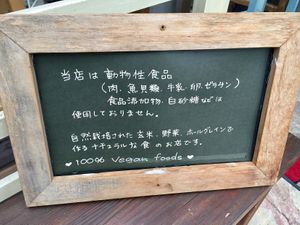 当店は動物性食品
(肉、魚貝類、牛乳、卵、ゼラチン)
食品添加物、白砂糖などは
使用しておりません。
自然栽培された玄米、野菜、ホールグレインで
作るナチュラルな食のお店です。
♥ 100% Vegan foods ♥